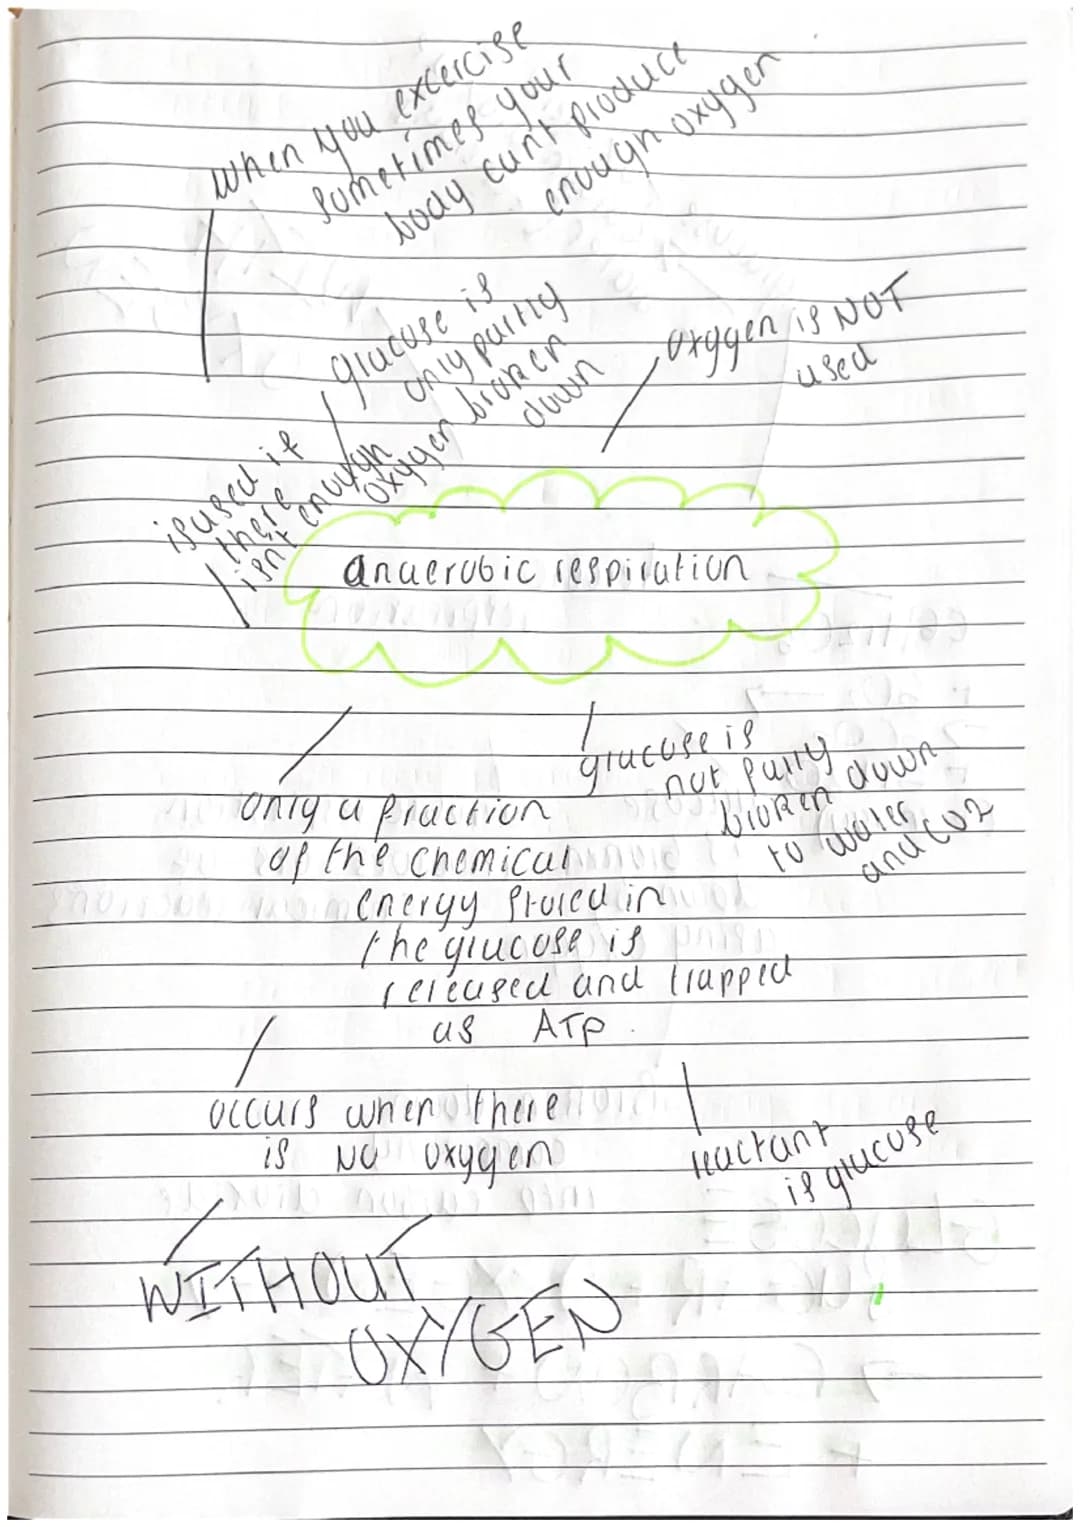 when you excercise
sometimes your
body can't produce
enough oxygen
glucose is
only partly
broken
down
oxygen is NOT
used
is used if
there
isn't enough
oxygen
anaerobic respiration
only a fraction
of the chemical
energy stored in
the glucose is
released and trapped
as ATP.
glucose is
not fully
broken down
to water
and CO2
occurs when there
is NO oxygen
reactant
is glucose
WITHOUT
OXYGEN